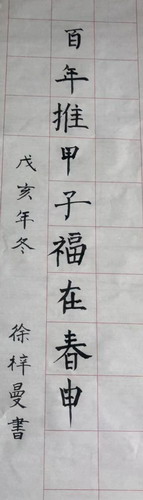 百年推甲子福在春申
戊亥年冬
徐梓曼書